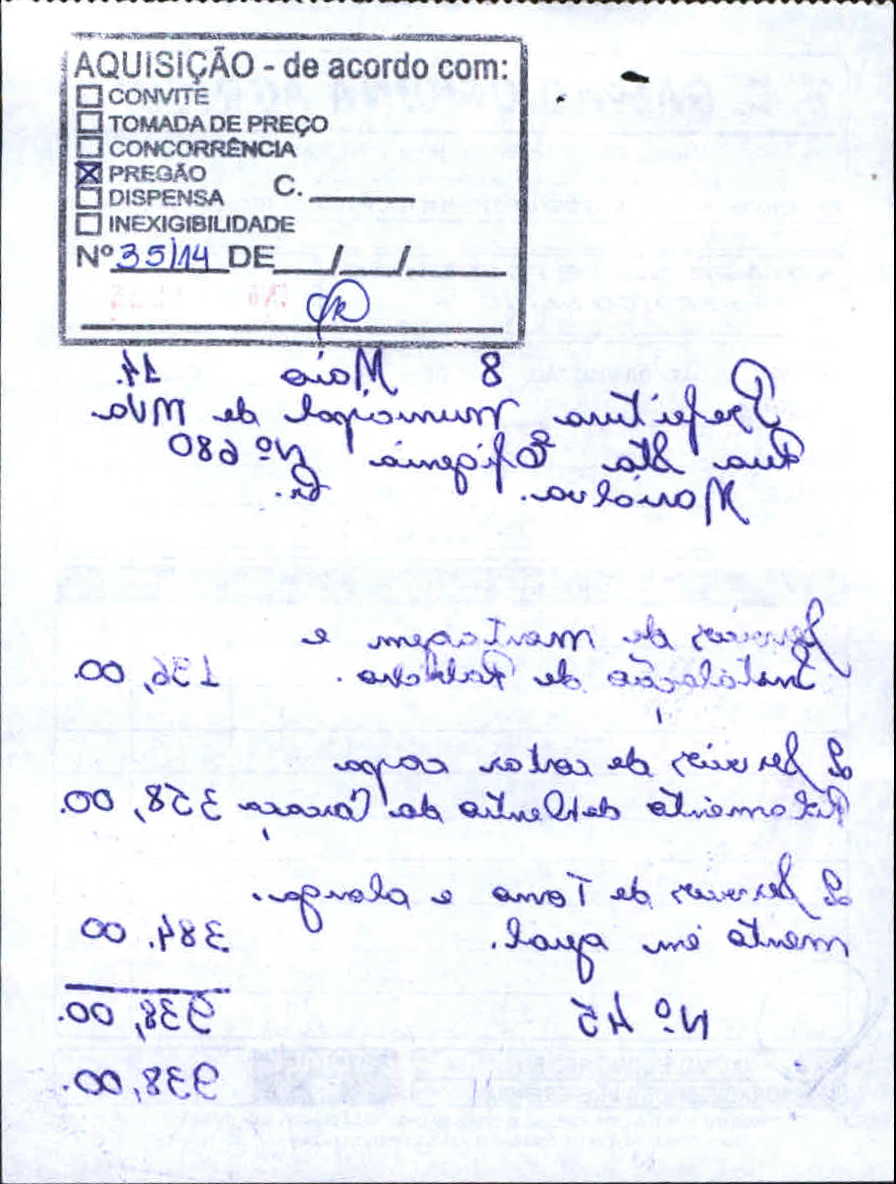 AQUISIÇÃO - de acordo com:
CONVITE
TOMADA DE PREÇO
CONCORRÊNCIA
PREGÃO
DISPENSA C.
INEXIGIBILIDADE
Nº 35/14 DE / /
8 Maio 14.
Prefeitura Municipal de Mva
Rua Sta Efigenia Nº 680
Marialva. Pr.
Servicos de montagem e
Instalação de 196,00
2 Servicos de cortar capa
da Carcaça 358,00.
2 Servicos de Torno e alonga.
mento em geral. 384.00
Nº 45 938,00.
938,00.